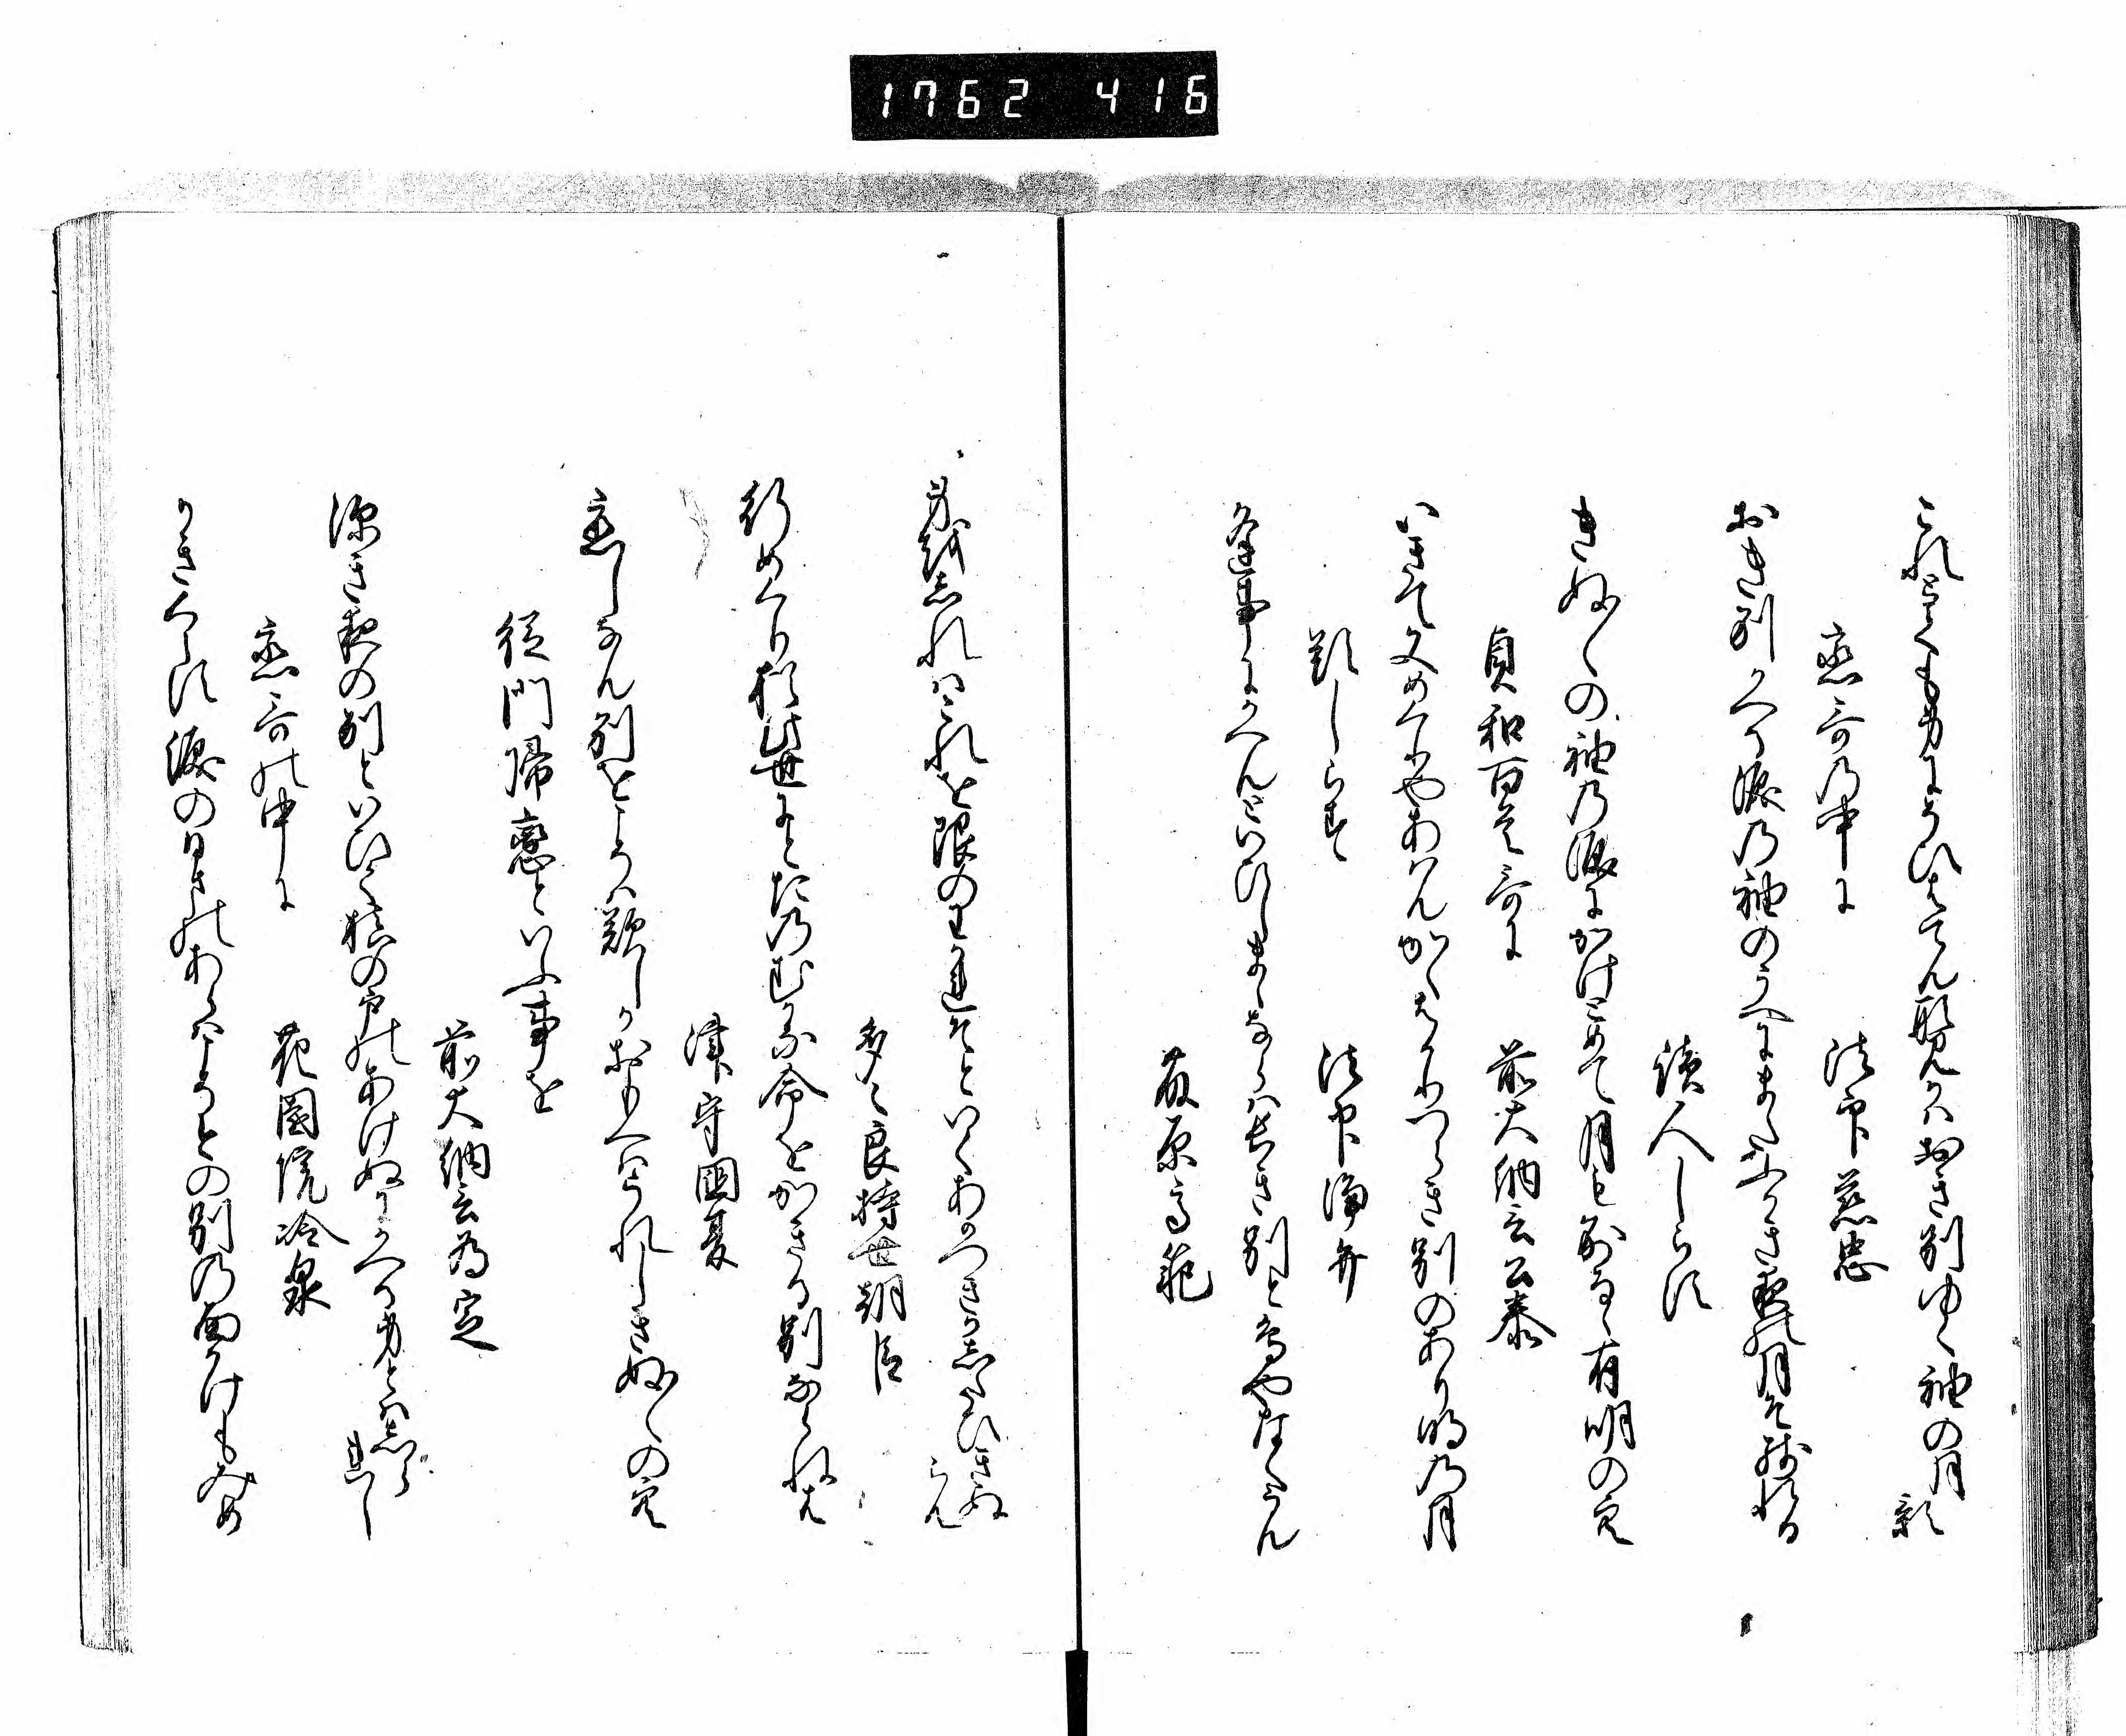 1762 416
これとても身にうひすてん形見かはおき別ゆく袖の月影
恋哥の中に　法印慈忠
おき別かへる涙の袖のうへにまたふかき夜の月そ残れる
読人しらす
きぬ〳〵の袖の涙にかけとめて月も別るゝ有明の空
貞和百首哥に　前大納言公泰
いきて又めくりやあはんかくはかりつらき別のあり明の月
題しらす　法印浄弁
逢事にかへんといひしまゝならは長き別と今やなるらん
藤原高範
身を志れはこれを限のわかれそといくあかつきかしたひきぬらん
多々良持世朝臣
行めくり猶此世にとたのむかな命をかきる別ならねは
津守国夏
恋しなん別をとこそ歎しかおもへはうれしきぬ〳〵の空
従門帰恋といふ事を
前大納言為定
深き夜の別といひて槙の戸のあけぬにかへる身とはしられし
恋哥の中に　花園院冷泉
かきくらす涙のひまのあらはこそこの別の面かけもみめ